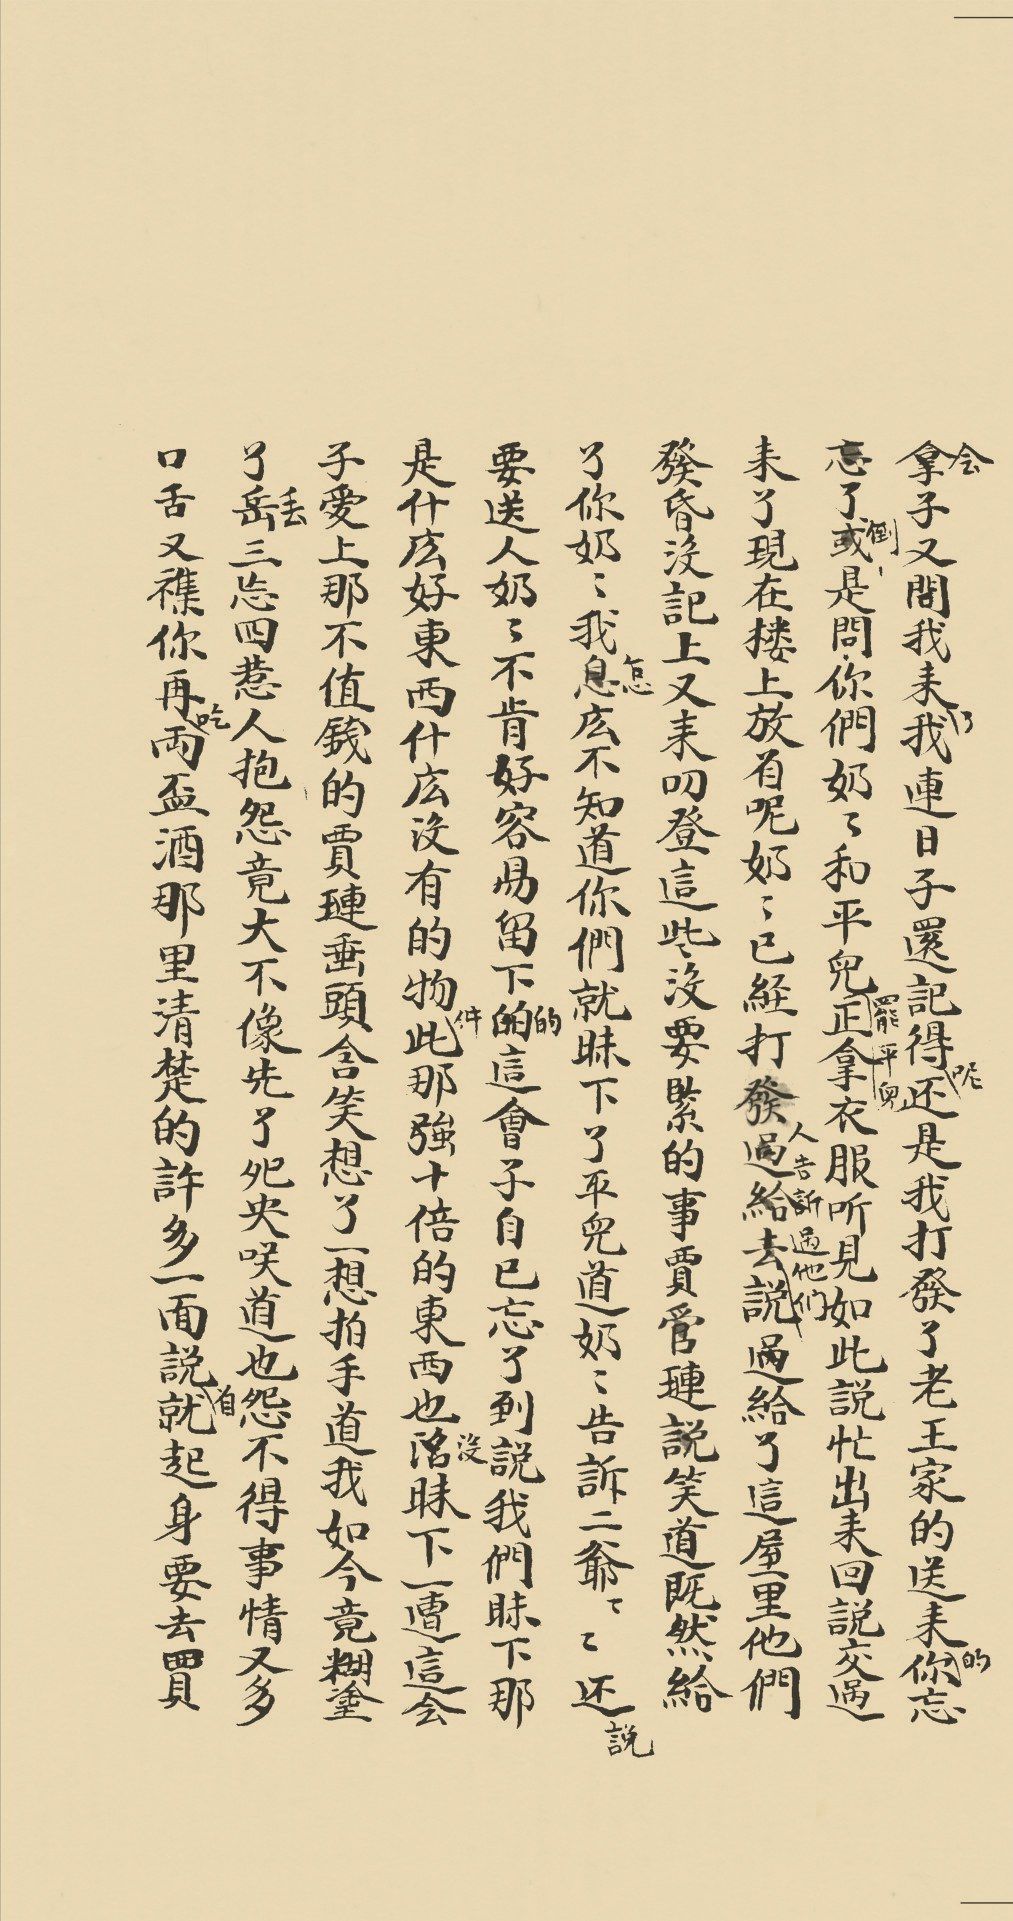 拿子又問我来我連日子還記得还是我打發了老王家的送来你忘
会
了
呢
的
忘了或是問你們奶〻和平兒正拿衣服听見如此説忙出来回説交过
倒
罷平兒
来了現在楼上放着呢奶〻已經打發過給去説過給了這屋里他們
人告訴過他们
發昏没記上又来叨登這些没要緊的事賈管璉説笑道既然給
了你奶〻我息広不知道你們就昧下了平兒道奶〻告訴二爺〻〻还
怎
説
要送人奶〻不肯好容易留下的這會子自已忘了到説我們昧下那
的
是什広好東西什広没有的物此那強十倍的東西也陷昧下一遭這会
件
没
子愛上那不值錢的賈璉垂頭含笑想了一想拍手道我如今竟糊塗
了岳三忘四惹人抱怨竟大不像先了夗央咲道也怨不得事情又多
丢
口舌又襍你再両盃酒那里清楚的許多一面説就起身要去賈
吃
自